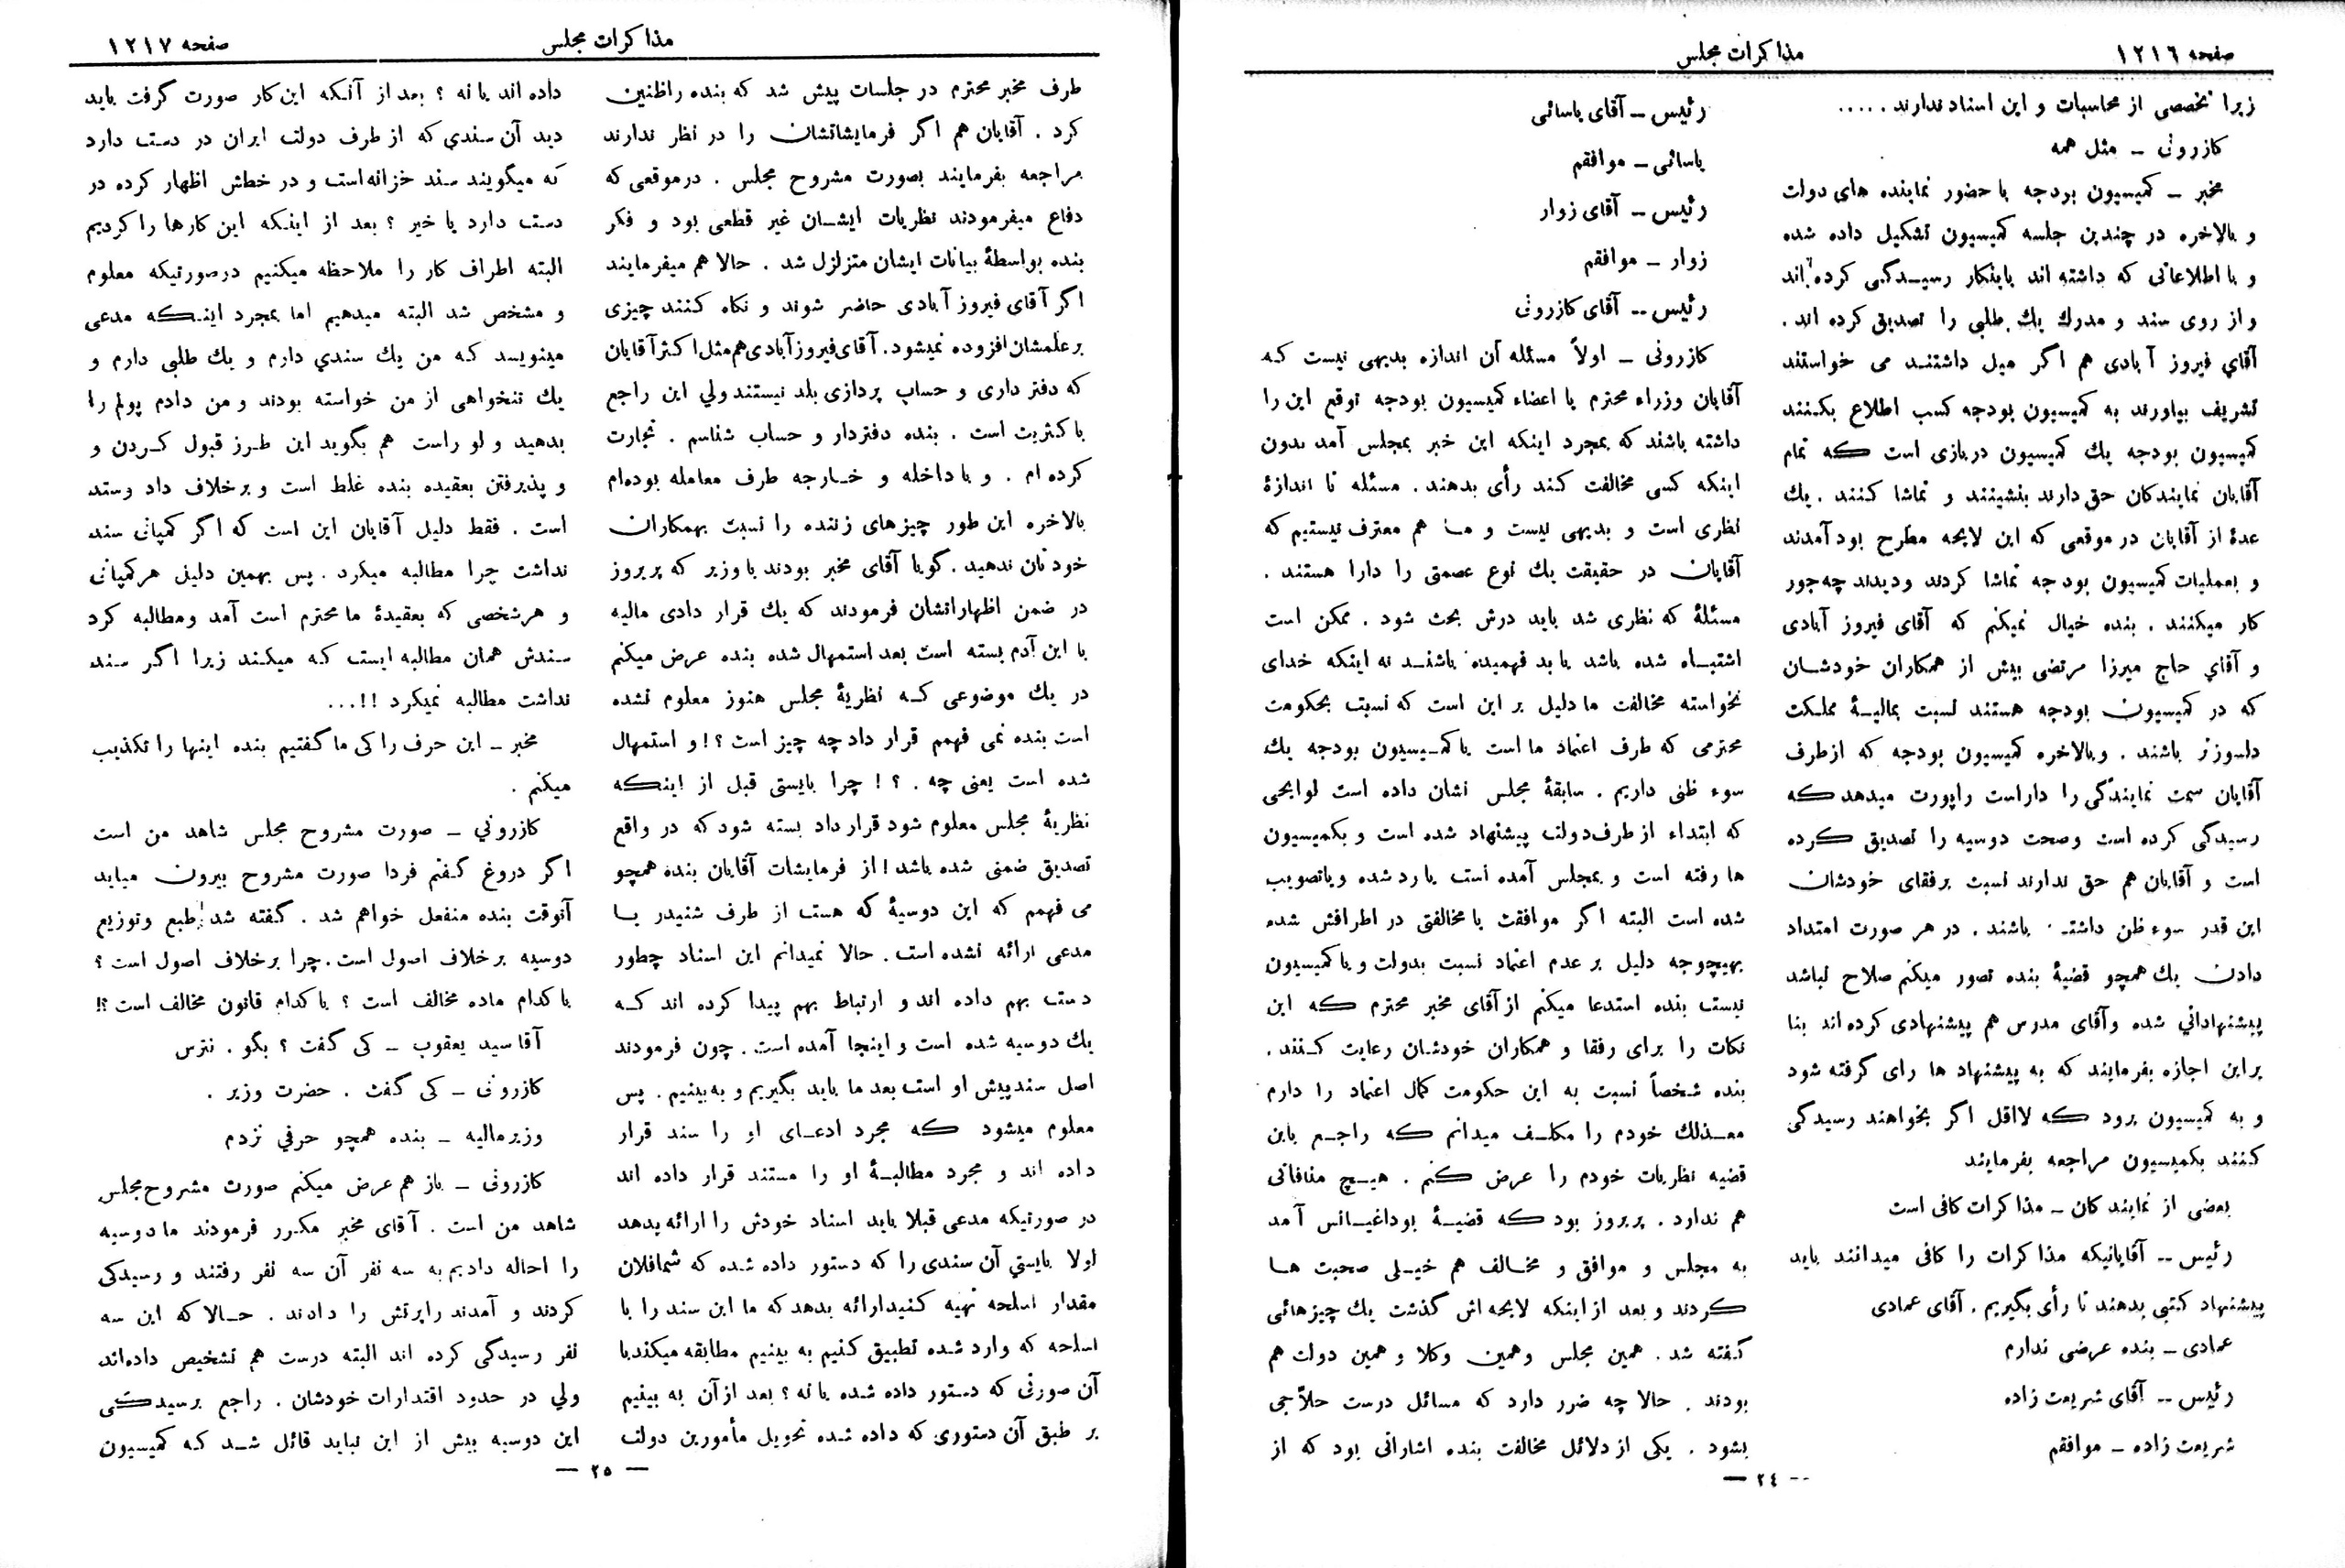 صفحه ۱۲۱۶
مذاکرات مجلس
زیرا تخصصی از محاسبات و این اسناد ندارند .....
کازرونی ـ مثل همه
مخبر ـ کمیسیون بودجه با حضور نماینده های دولت
و بالاخره در چندین جلسه کمیسیون تشکیل داده شده
و با اطلاعاتی که داشته اند باینکار رسیدگی کرده اند
و از روی سند و مدرك يك طلبی را تصدیق کرده اند.
آقاي فیروز آبادی هم اگر میل داشتند می خواستند
تشریف بیاورند به کمیسیون بودجه کسب اطلاع بکنند
کمیسیون بودجه يك کمیسیون دربازی است که تمام
آقایان نمایندگان حق دارند بنشینند و تماشا کنند . يك
عدهٔ از آقایان در موقعی که این لایحه مطرح بود آمدند
و بعملیات کمیسیون بودجه تماشا کردند و دیدند چه جور
کار میکنند . بنده خیال نمیکنم که آقای فیروز آبادی
و آقاي حاج میرزا مرتضی بیش از همکاران خودشان
که در کمیسیون بودجه هستند نسبت بمالیهٔ مملکت
دلسوزتر باشند . و بالاخره کمیسیون بودجه که از طرف
آقایان سمت نمایندگی را داراست راپورت میدهد که
رسیدگی کرده است وصحت دوسیه را تصدیق کرده
است و آقایان هم حق ندارند نسبت برفقای خودشان
این قدر سوء ظن داشته باشند . در هر صورت امتداد
دادن يك همچو قضیهٔ بنده تصور میکنم صلاح نباشد
پیشنهاداتي شده و آقای مدرس هم پیشنهادی کرده اند بنا
بر این اجازه بفرمایند که به پیشنهاد ها رای گرفته شود
و به کمیسیون برود که لااقل اگر بخواهند رسیدگی
کنند بکمیسیون مراجعه بفرمایند
بعضی از نمایندکان ـ مذاکرات کافی است
رئیس -- آقایانیکه مذاکرات را کافی میدانند باید
پیشنهاد کتبی بدهند تا رأی بگیریم . آقای عمادی
عمادی ـ بنده عرضی ندارم
رئیس -- آقای شریعت زاده
شریعت زاده ـ موافقم
رئیس ـ آقای یاسائی
یاسائی ـ موافقم
رئیس ـ آقای زوار
زوار ـ موافقم
رئیس -- آقای کازرونی
کازرونی ـ اولاً مسئله آن اندازه بدیهی نیست که
آقایان وزراء محترم یا اعضاء کمیسیون بودجه توقع این را
داشته باشند که بمجرد اینکه این خبر بمجلس آمد بدون
اینکه کسی مخالفت کند رأی بدهند . مسئله تا اندازهٔ
نظری است و بدیهی نیست و ما هم معترف نیستیم که
آقایان در حقیقت يك نوع عصمتی را دارا هستند .
مسئلهٔ که نظری شد باید درش بحث شود . ممکن است
اشتباه شده باشد یا بد فهمیده باشند نه اینکه خدای
نخواسته مخالفت ما دلیل بر این است که نسبت بحکومت
محترمی که طرف اعتماد ما است یا کمیسیون بودجه يك
سوء ظنی داریم . سابقهٔ مجلس نشان داده است لوایحی
که ابتداء از طرف دولت پیشنهاد شده است و بکمیسیون
ها رفته است و بمجلس آمده است یا رد شده و یا تصویب
شده است البته اگر موافقت یا مخالفتی در اطرافش شده
بهیچوجه دلیل بر عدم اعتماد نسبت بدولت و یا کمیسیون
نیست بنده استدعا میکنم از آقای مخبر محترم که این
نکات را برای رفقا و همکاران خودشان رعایت کنند .
بنده شخصاً نسبت به این حکومت کمال اعتماد را دارم
معذلك خودم را مکلف میدانم که راجع باین
قضیه نظریات خودم را عرض کنم . هیچ منافاتی
هم ندارد . پریروز بود که قضیهٔ بوداغیانس آمد
به مجلس و موافق و مخالف هم خیلی صحبت ها
کردند و بعد از اینکه لایحه اش گذشت يك چیزهائی
گفته شد . همین مجلس وهمین وکلا و همین دولت هم
بودند . حالا چه ضرر دارد که مسائل درست حلاّجی
بشود . یکی از دلائل مخالفت بنده اشاراتی بود که از
-- ۲٤ —
مذاکرات مجلس
صفحه ۱۲۱۷
طرف مخبر محترم در جلسات پیش شد که بنده را ظنین
کرد . آقایان هم اگر فرمایشاتشان را در نظر ندارند
مراجعه بفرمایند بصورت مشروح مجلس . در موقعی که
دفاع میفرمودند نظریات ایشان غیر قطعی بود و فکر
بنده بواسطهٔ بیانات ایشان متزلزل شد . حالا هم میفرمایند
اگر آقای فیروز آبادی حاضر شوند و نکاه کنند چیزی
بر علمشان افزوده نمیشود . آقای فیروز آبادی هم مثل اکثر آقایان
که دفتر داری و حساب پردازی بلد نیستند ولي این راجع
باکثریت است . بنده دفتردار و حساب شناسم . تجارت
کرده ام . و با داخله و خارجه طرف معامله بوده‌ام
بالاخره این طور چیزهای زننده را نسبت بهمکاران
خودتان ندهید . گویا آقای مخبر بودند یا وزیر که پریروز
در ضمن اظهاراتشان فرمودند که يك قرار دادی مالیه
با این آدم بسته است بعد استمهال شده بنده عرض میکنم
در يك موضوعی که نظریهٔ مجلس هنوز معلوم نشده
است بنده نمی فهمم قرار داد چه چیز است ؟! و استمهال
شده است یعنی چه . ؟ ! چرا بایستی قبل از اینکه
نظریهٔ مجلس معلوم شود قرار داد بسته شود که در واقع
تصدیق ضمنی شده باشد ! از فرمایشات آقایان بنده همچو
می فهمم که این دوسیهٔ که هست از طرف شنیدر یا
مدعی ارائه نشده است . حالا نمیدانم این اسناد چطور
دست بهم داده اند و ارتباط بهم پیدا کرده اند که
يك دوسیه شده است و اینجا آمده است . چون فرمودند
اصل سند پیش او است بعد ما باید بگیریم و به بینیم . پس
معلوم میشود که مجرد ادعای او را سند قرار
داده اند و مجرد مطالبهٔ او را مستند قرار داده اند
در صورتیکه مدعی قبلا باید اسناد خودش را ارائه بدهد
اولا بایستي آن سندی را که دستور داده شده که شما فلان
مقدار اسلحه تهیه کنید ارائه بدهد که ما این سند را با
اسلحه که وارد شده تطبیق کنیم به بینیم مطابقه میکند با
آن صورتی که دستور داده شده یا نه ؟ بعد از آن به بینیم
بر طبق آن دستوری که داده شده تحویل مأمورین دولت
داده اند یا نه ؟ بعد از آنکه این کار صورت گرفت باید
دید آن سندي که از طرف دولت ایران در دست دارد
که میگویند سند خزانه است و در خطش اظهار کرده در
دست دارد یا خیر ؟ بعد از اینکه این کارها را کردیم
البته اطراف کار را ملاحظه میکنیم در صورتیکه معلوم
و مشخص شد البته میدهیم اما بمجرد اینکه مدعی
مینویسد که من يك سندي دارم و يك طلبی دارم و
يك تنخواهی از من خواسته بودند و من دادم پولم را
بدهید و لو راست هم بگوید این طرز قبول کردن و
و پذیرفتن بعقیده بنده غلط است و بر خلاف داد و ستد
است . فقط دلیل آقایان این است که اگر کمپانی سند
نداشت چرا مطالبه میکرد . پس بهمین دلیل هر کمپانی
و هر شخصی که بعقیدهٔ ما محترم است آمد و مطالبه کرد
سندش همان مطالبه ایست که میکند زیرا اگر سند
نداشت مطالبه نمیکرد !!...
مخبر ـ این حرف را کی ما گفتیم بنده اینها را تکذیب
میکنم .
کازروني ـ صورت مشروح مجلس شاهد من است
اگر دروغ گفتم فردا صورت مشروح بیرون میاید
آنوقت بنده منفعل خواهم شد . گفته شد طبع و توزیع
دوسیه برخلاف اصول است . چرا برخلاف اصول است ؟
با کدام ماده مخالف است ؟ با کدام قانون مخالف است ؟!
آقا سید یعقوب ـ کی گفت ؟ بگو . نترس
کازرونی ـ کی گفت . حضرت وزیر .
وزیر مالیه ـ بنده همچو حرفي نزدم
کازرونی ـ باز هم عرض میکنم صورت مشروح مجلس
شاهد من است . آقای مخبر مکرر فرمودند ما دوسیه
را احاله دادیم به سه نفر آن سه نفر رفتند و رسیدگی
کردند و آمدند راپرتش را دادند . حالا که این سه
نفر رسیدگی کرده اند البته درست هم تشخیص داده‌اند
ولي در حدود اقتدارات خودشان . راجع برسیدگی
این دوسیه بیش از این نباید قائل شد که کمیسیون
— ۲٥ —